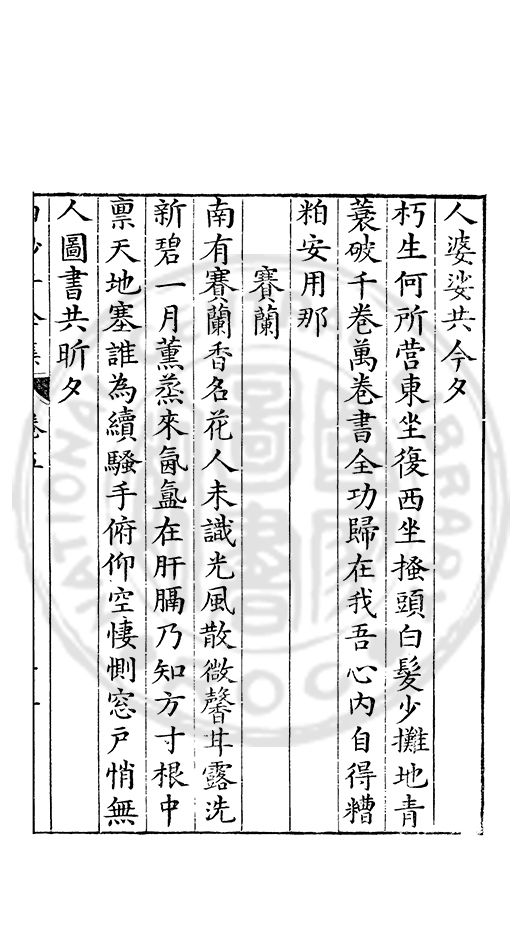 人婆娑共今夕
朽生何所營東坐復西坐搔頭白髮少攤地青
蓑破千卷萬卷書全功歸在我吾心內自得糟
粕安用那
賽蘭
南有賽蘭香名花人未識光風散微馨甘露洗
新碧一月薰蒸來氤氳在肝膈乃知方寸根中
禀天地塞誰為續騷手俯仰空悽惻窓戶悄無
人圖書共昕夕